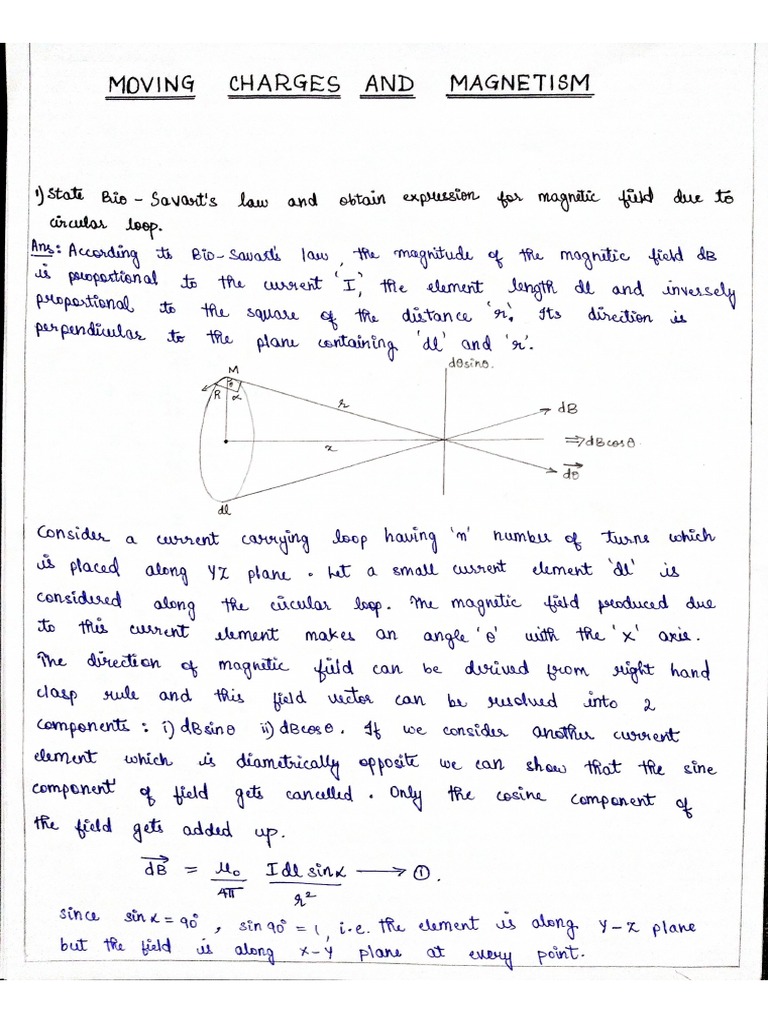 MOVING CHARGES AND MAGNETISM
1) State Bio - Savart's law and obtain expression for magnetic field due to
circular loop.
Ans: According to Bio-Savart's law, the magnitude of the magnetic field dB
is proportional to the current 'I', the element length dl and inversely
proportional to the square of the distance 'r'. Its direction is
perpendicular to the plane containing 'dl' and 'r'.
dθsinθ.
M
R θ α
r
dB
x
⇒dBcosθ
dθ
dl
Consider a current carrying loop having 'n' number of turns which
is placed along YZ plane. Let a small current element 'dl' is
considered along the circular loop. The magnetic field produced due
to this current element makes an angle 'θ' with the 'x' axis.
The direction of magnetic field can be derived from right hand
clasp rule and this field vector can be resolved into 2
components : i) dBsinθ ii) dBcosθ. If we consider another current
element which is diametrically opposite we can show that the sine
component of field gets cancelled. Only the cosine component of
the field gets added up.
dB = μ₀/4π Idl sinα/r² ⟶ ①.
since sinα = 90°, sin90° = 1, i.e. the element is along Y-Z plane
but the field is along X-Y plane at every point.